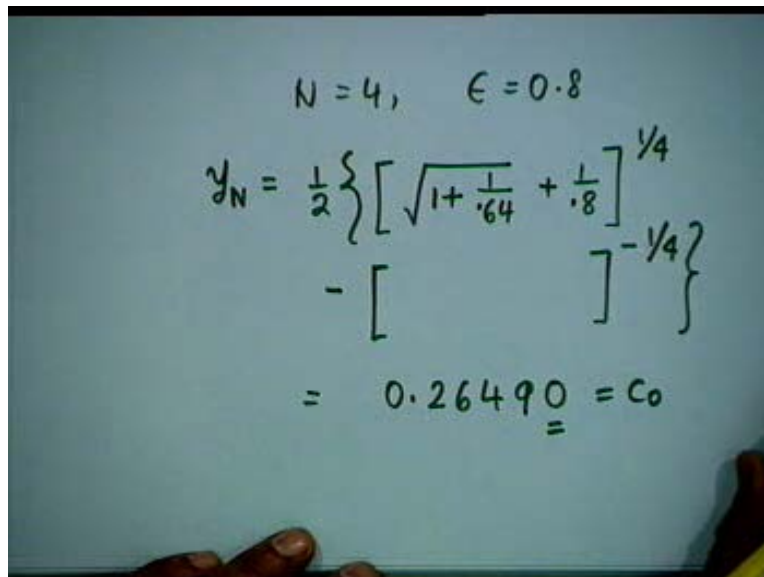 N = 4, ∈ = 0.8
y_N = 1/2 { [ √(1 + 1/.64) + 1/.8 ]^1/4
- [ ]^-1/4 }
= 0.26490 = C₀